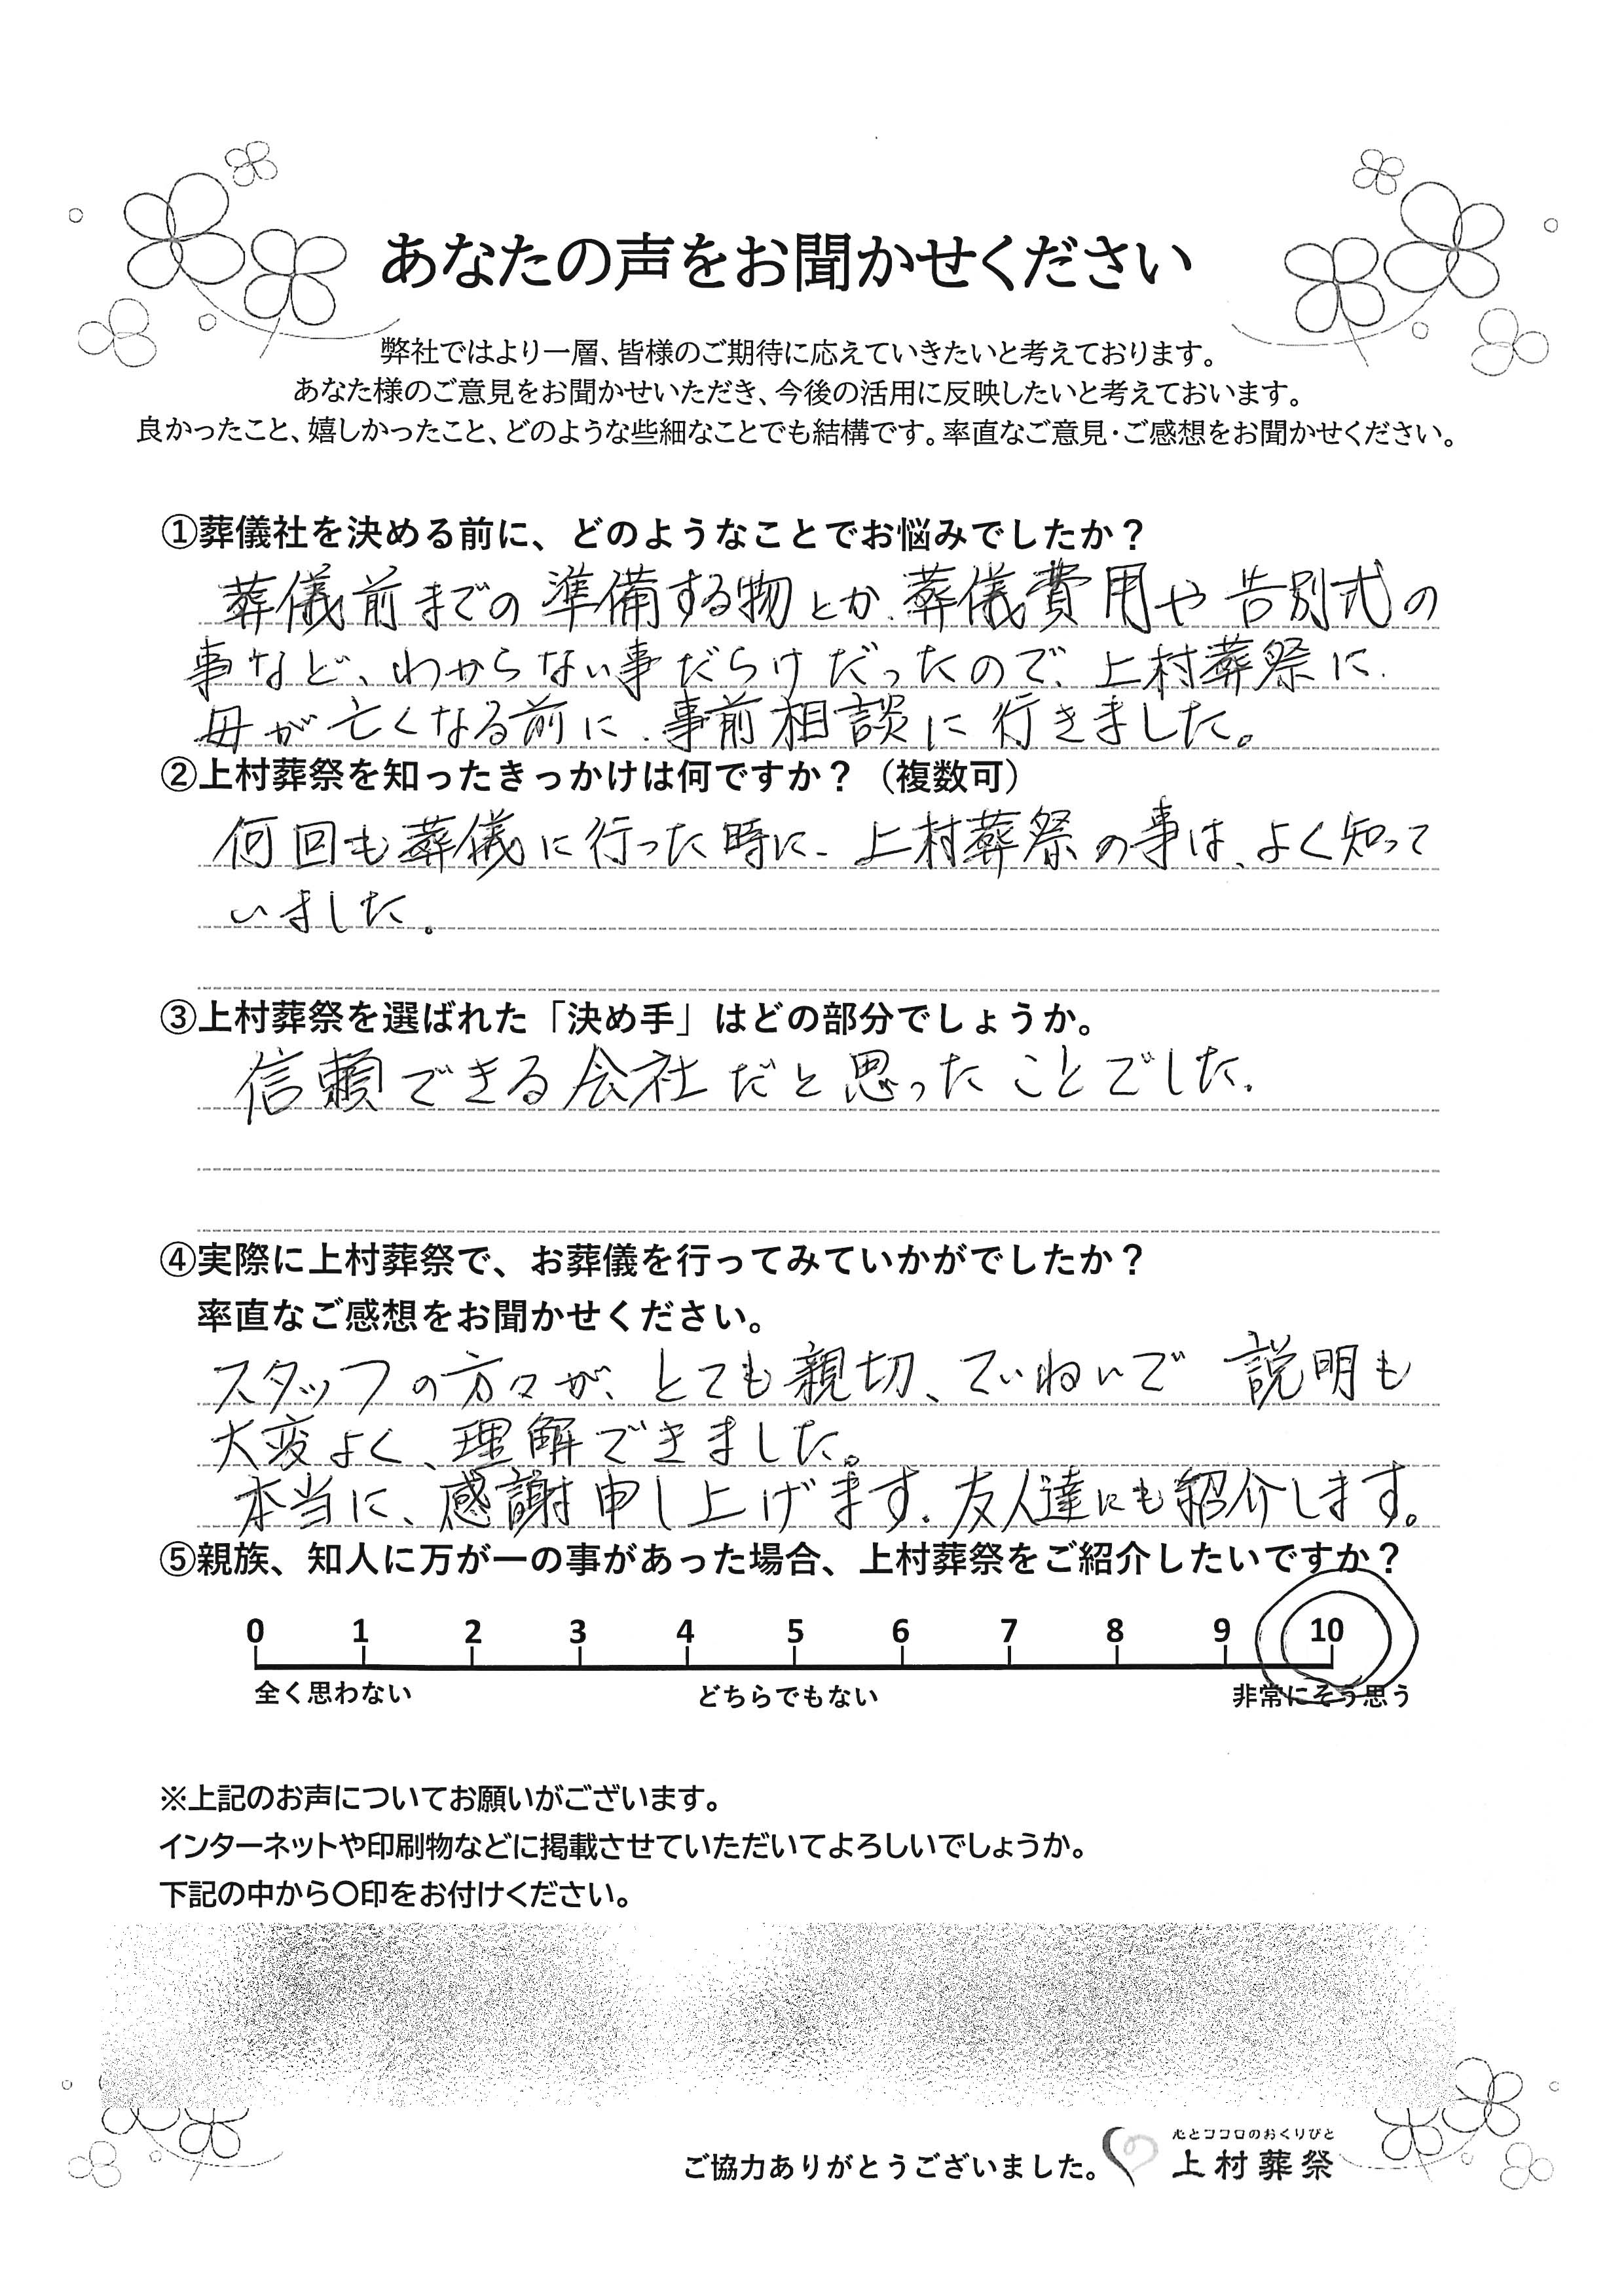 あなたの声をお聞かせください
弊社ではより一層、皆様のご期待に応えていきたいと考えております。
あなた様のご意見をお聞かせいただき、今後の活用に反映したいと考えておいます。
良かったこと、嬉しかったこと、どのような些細なことでも結構です。率直なご意見・ご感想をお聞かせください。
①葬儀社を決める前に、どのようなことでお悩みでしたか？
葬儀前までの準備する物とか、葬儀費用や告別式の
事など、わからない事だらけだったので、上村葬祭に、
母が亡くなる前に、事前相談に行きました。
②上村葬祭を知ったきっかけは何ですか？（複数可）
何回も葬儀に行った時に、上村葬祭の事は、よく知って
いました。
③上村葬祭を選ばれた「決め手」はどの部分でしょうか。
信頼できる会社だと思ったことでした。
④実際に上村葬祭で、お葬儀を行ってみていかがでしたか？
率直なご感想をお聞かせください。
スタッフの方々が、とても親切、ていねいで 説明も
大変よく、理解できました。
本当に、感謝申し上げます。友人達にも紹介します。
⑤親族、知人に万が一の事があった場合、上村葬祭をご紹介したいですか？
0 1 2 3 4 5 6 7 8 9 10
全く思わない どちらでもない 非常にそう思う
※上記のお声についてお願いがございます。
インターネットや印刷物などに掲載させていただいてよろしいでしょうか。
下記の中から〇印をお付けください。
心とココロのおくりびと
ご協力ありがとうございました。 上村葬祭